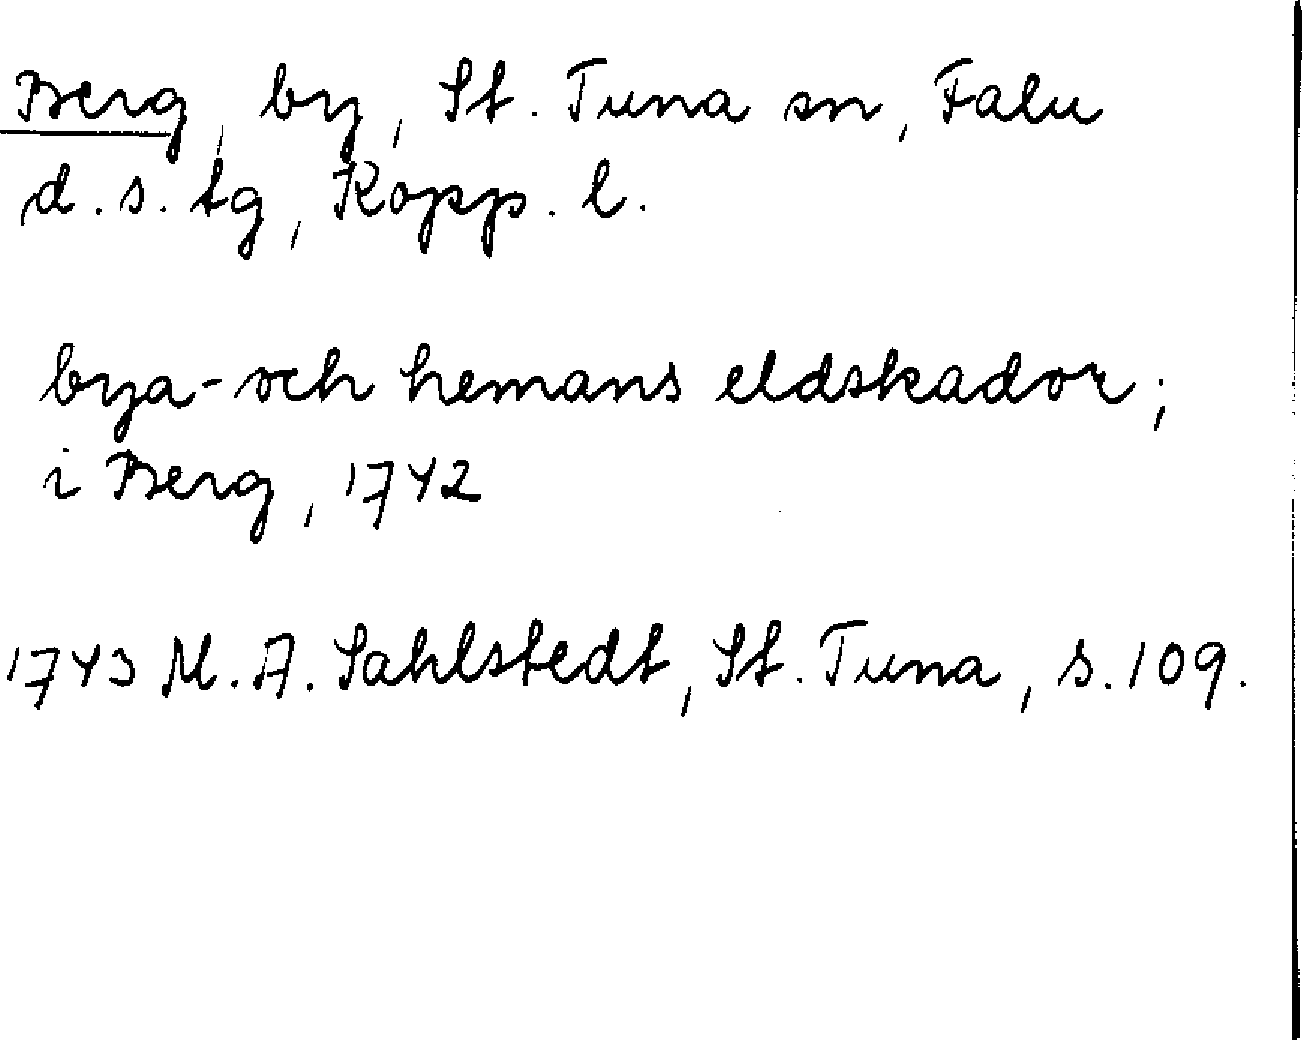 Berg, by, St. Tuna sn, Falu
d. s. tg, Kopp. l.
bya- och hemans eldskador;
i Berg, 1742
1743 M. A. Sahlstedt, St. Tuna, s. 109.